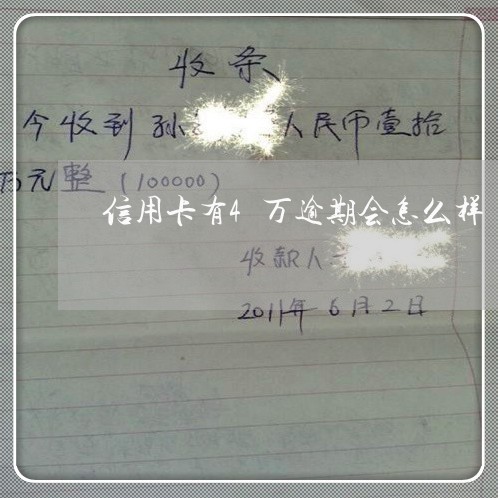 收条
今收到孙 人民币壹拾
万元整(100000)
信用卡有4 万逾期会怎么样
收款人
2011年6月2日